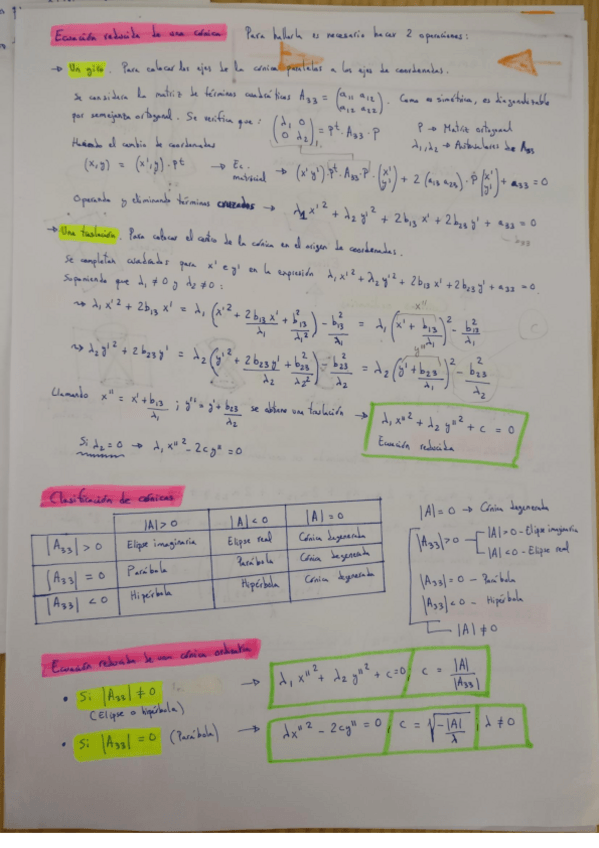 Ecuación reducida de una cónica Para hallarla es necesario hacer 2 operaciones:
→ Un giro. Para colocar los ejes de la cónica paralelos a los ejes de coordenadas.
Se considera la matriz de términos cuadráticos A₃₃ = (a₁₁ a₁₂ / a₁₂ a₂₂). Como es simétrica, es diagonalizable
por semejanza ortogonal. Se verifica que: (λ₁ 0 / 0 λ₂) = Pᵗ·A₃₃·P P → Matriz ortogonal
λ₁,λ₂ → Autovalores de A₃₃
Haciendo el cambio de coordenadas
(x,y) = (x',y')·Pᵗ → Ec. matricial → (x' y') Pᵗ·A₃₃·P·(x' / y') + 2 (a₁₃ a₂₃)·P(x' / y') + a₃₃ = 0
Operando y eliminando términos cruzados → λ₁x'² + λ₂y'² + 2b₁₃x' + 2b₂₃y' + a₃₃ = 0
→ Una traslación. Para colocar el centro de la cónica en el origen de coordenadas.
Se completan cuadrados para x' e y' en la expresión λ₁x'² + λ₂y'² + 2b₁₃x' + 2b₂₃y' + a₃₃ = 0.
Suponiendo que λ₁ ≠ 0 y λ₂ ≠ 0:
x''
→ λ₁x'² + 2b₁₃x' = λ₁(x'² + 2b₁₃x'/λ₁ + b₁₃²/λ₁²) - b₁₃²/λ₁ = λ₁(x' + b₁₃/λ₁)² - b₁₃²/λ₁
y''
→ λ₂y'² + 2b₂₃y' = λ₂(y'² + 2b₂₃y'/λ₂ + b₂₃²/λ₂²) - b₂₃²/λ₂ = λ₂(y' + b₂₃/λ₁)² - b₂₃²/λ₂
C
Llamando x'' = x' + b₁₃/λ₁ ; y'' = y' + b₂₃/λ₂ se obtiene una traslación → λ₁x''² + λ₂y''² + c = 0
Ecuación reducida
Si λ₂ = 0 → λ₁x''² - 2cy'' = 0
Clasificación de cónicas
|A| > 0 |A| < 0 |A| = 0
|A₃₃| > 0 Elipse imaginaria Elipse real Cónica degenerada
|A₃₃| = 0 Parábola Parábola Cónica degenerada
|A₃₃| < 0 Hipérbola Hipérbola Cónica degenerada
|A| = 0 → Cónica degenerada
|A₃₃| > 0 |A| > 0 - Elipse imaginaria
|A| < 0 - Elipse real
|A₃₃| = 0 - Parábola
|A₃₃| < 0 - Hipérbola
|A| ≠ 0
Ecuación reducida de una cónica
• Si |A₃₃| ≠ 0 → λ₁x''² + λ₂y''² + c = 0 c = |A|/|A₃₃|
(Elipse o hipérbola)
• Si |A₃₃| = 0 (Parábola) → λx''² - 2cy'' = 0 c = √(-|A|/λ) λ ≠ 0